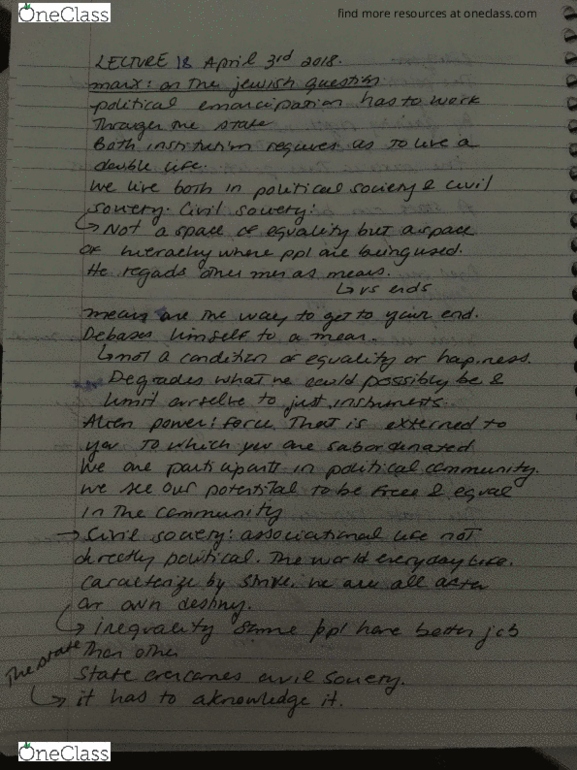 OneClass
find more resources at oneclass.com
LECTURE 18 April 3rd 2018.
marx: on the jewish question.
political emancipation has to work
Through the state
Both institution requires us to live a
double life.
we live both in political society & civil
society. Civil society:
↳ Not a space of equality but a space
of hierachy where ppl are being used.
He regards other men as means.
↳ vs ends
means are the way to get to your end.
Debases himself to a mean.
↳ not a condition of equality or hapiness.
Degrades what he could possibly be &
limit ourselve to just instruments
Alien power: force. That is externed to
you to which you are subordinated
We are participants in political community.
we see our potential to be free & equal
in the community
→ Civil society: associational life not
directly political. The world everyday life.
caracterize by strive, we are all acter
or own destiny.
↳ inequality some ppl have better job
Than other
The state
State overcomes civil society.
↳ it has to aknowledge it.
OneClass